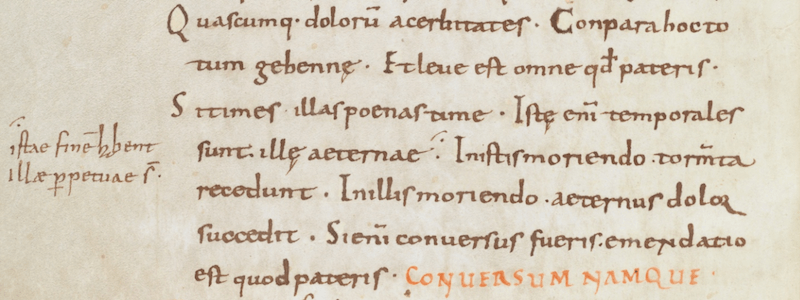 Quascumq· doloru̅ acerbitates · Conpara hoc to
tum gehennę · Et leve est omne qd̅ pateris ·
Si times illas poenas time · Istę eni̅ temporales
sunt· illę aeternae · In istis moriendo · torm̅ta
recedunt · In illis moriendo · aeternus dolor
succedit · Si eni̅ conversus fueris· emendatio
est quod pateris · CONVERSUM NAMQUE ·
istae fine̅ hħbent
illae ꝑpetuae s̅ ·